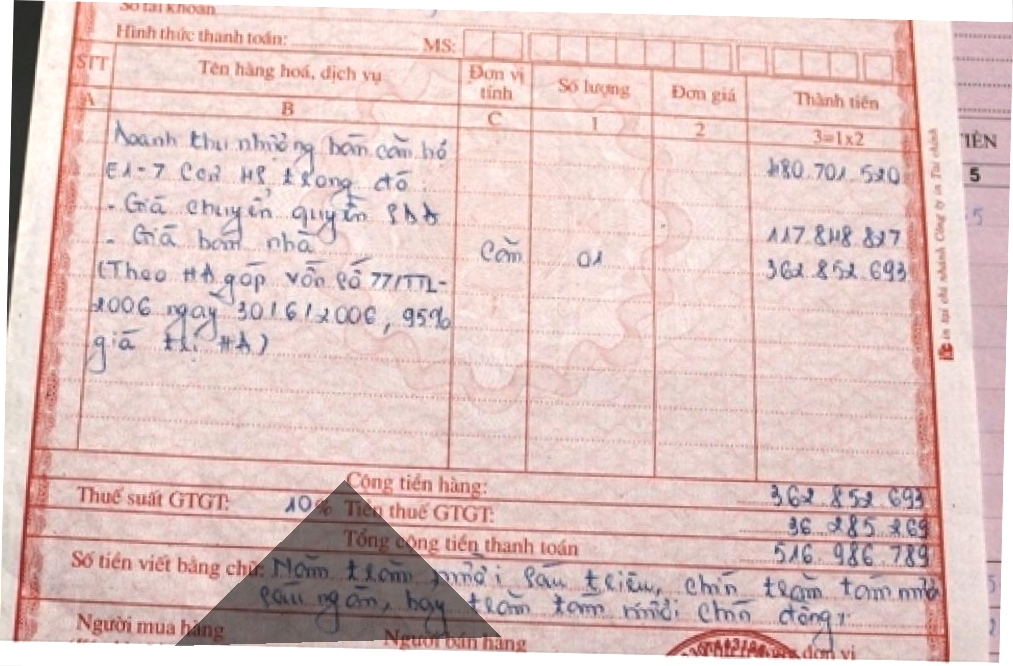 Số tài khoản
Hình thức thanh toán: MS:
STT Tên hàng hoá, dịch vụ Đơn vị tính Số lượng Đơn giá Thành tiền
A B C 1 2 3=1x2
Doanh thu nhượng bán căn hộ 480.701.520
E1-7 trong đó:
- Giá chuyển quyền SDĐ 117.848.827
- Giá bán nhà Căn 01 362.852.693
(Theo HĐ góp vốn số 77/TTL-
2006 ngày 30/6/2006, 95%
giá trị HĐ)
Cộng tiền hàng: 362.852.693
Thuế suất GTGT: 10% Tiền thuế GTGT: 36.285.269
Tổng cộng tiền thanh toán 516.986.789
Số tiền viết bằng chữ: Năm trăm mười sáu triệu, chín trăm tám mươi
sáu ngàn, bảy trăm tám mươi chín đồng
Người mua hàng Người bán hàng đơn vị
in tại chi nhánh Công ty in Tài chính
TIỀN
5
5